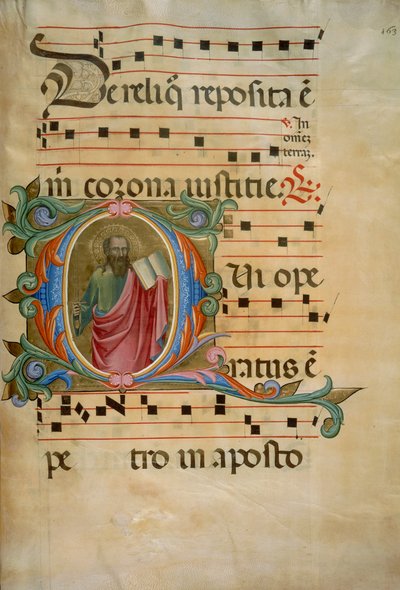 163
De reliq̄ reposita ē
℣. In
om̄ez
terraz.
m̄ corona iustitie. ℟.
Qui ope
ratus ē
pe tro in aposto